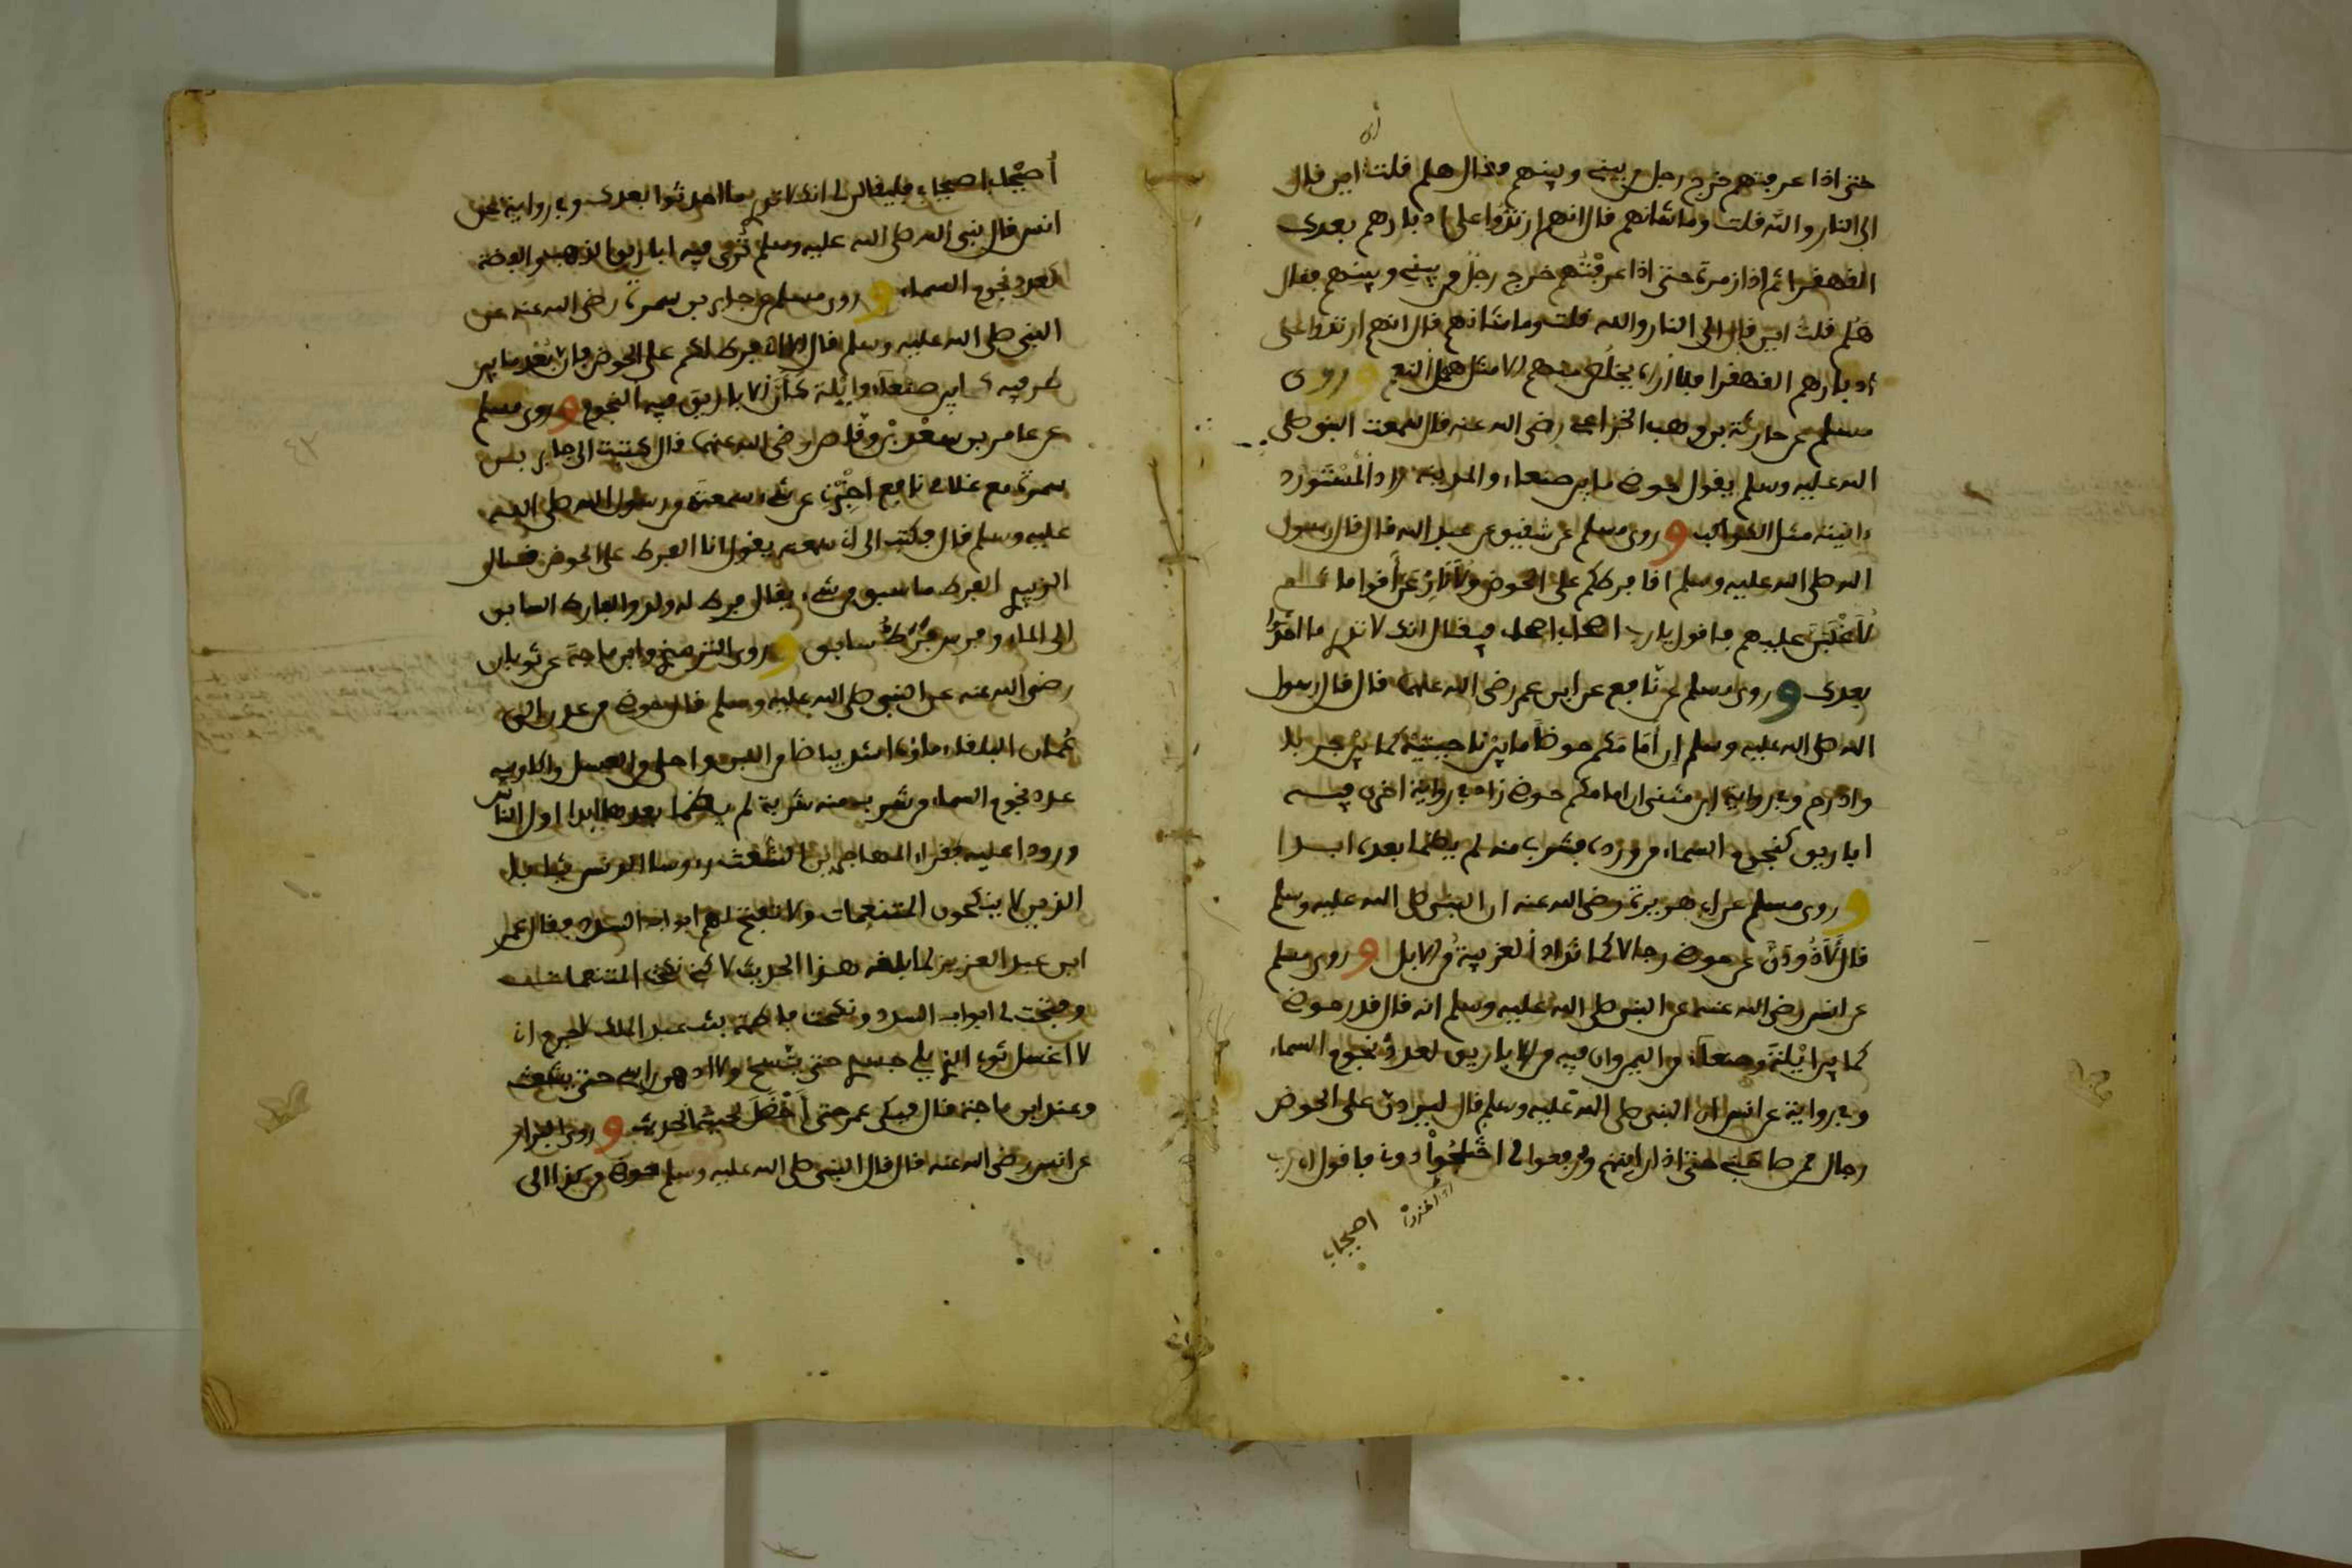 حتى اذا عرفتهم خرج رجل من بيني وبينهم فقال هلم فقلت اين قال
الى النار والله قلت وما شانهم قال انهم ارتدوا على ادبارهم بعدك
القهقرا ثم اذا زمرة حتى اذا عرفتهم خرج رجل من بيني وبينهم فقال
هلم قلت اين قال الى النار والله قلت وما شانهم قال انهم ارتدوا على
ادبارهم القهقرا فلا أراه يخلص منهم الا مثل همل النعم وروى
مسلم عن حارثة بن وهب الخزاعي رضي الله عنه قال سمعت النبي صلى
الله عليه وسلم يقول حوضه ما بين صنعاء والمدينة زاد المستورد
ءانيته مثل الكواكب وروى مسلم عن شقيق عن عبد الله قال قال رسول
الله صلى الله عليه وسلم انا فرطكم على الحوض ولأنازعن أقواما ثم
لأغلبن عليهم فاقول يا رب اصحابي اصحابي فيقال انك لا تدري ما احدثوا
بعدك وروى مسلم عن نافع عن ابن عمر رضي الله عنهما قال قال رسول
الله صلى الله عليه وسلم ان أمامكم حوضا ما بين ناحيتيه كما بين جربا
واذرح وفي رواية ابن مثنى ان امامكم حوضي زاد في رواية اخرى فيه
اباريق كنجوم السماء من ورده فشرب منه لم يظمأ بعده ابدا
وروى مسلم عن ابي هريرة رضي الله عنه ان النبي صلى الله عليه وسلم
قال لأذودن عن حوضي رجالا كما تذاد الغريبة من الابل وروى مسلم
عن انس رضي الله عنه عن النبي صلى الله عليه وسلم انه قال قدر حوضي
كما بين ايلة وصنعاء من اليمن وان فيه من الاباريق لعدد نجوم السماء
وفي رواية عن انس ان النبي صلى الله عليه وسلم قال ليردن على الحوض
رجال ممن صاحبني حتى اذا رايتهم ورفعوا لي اختلجوا دوني فاقول اي رب
اصيحابي
أصيحابي اصيحابي فليقالن لي انك لا تدري ما احدثوا بعدك وفي رواية عن
انس قال نبي الله صلى الله عليه وسلم ترى فيه اباريق الذهب والفضة
كعدد نجوم السماء وروى مسلم عن جابر بن سمرة رضي الله عنه عن
النبي صلى الله عليه وسلم قال الا اني فرط لكم على الحوض وان بعد ما بين
طرفيه كما بين صنعاء وايلة كأن الاباريق فيه النجوم وروى مسلم
عن عامر بن سعد بن وقاص رضي الله عنه قال كتبت الى جابر بن
سمرة مع غلامي نافع اخبرني عن شيء سمعته من رسول الله صلى الله
عليه وسلم قال فكتب الى اني سمعته يقول انا الفرط على الحوض قال
الزبيدي الفرط ما سبق من شيء يقال فرط له ولد والفارط السابق
الى الماء وفرس فرط سابق وروى الترمذي وابن ماجة عن ثوبان
رضي الله عنه عن النبي صلى الله عليه وسلم قال حوضي من عدن الى
عمان البلقاء ماؤه اشد بياضا من اللبن واحلى من العسل واكاويبه
عدد نجوم السماء من شرب منه شربة لم يظمأ بعدها ابدا اول الناس
ورودا عليه فقراء المهاجرين الشعث رءوسا الدنس ثيابا
الذين لا ينكحون المتنعمات ولا تفتح لهم ابواب السدد فقال عمر
ابن عبد العزيز لما بلغه هذا الحديث لاكني نكحت المتنعمات
وفتحت لي ابواب السدد ونكحت فاطمة بنت عبد الملك لا جرم اني
لا اغسل ثوبي الذي يلي جسدي حتى يتسخ ولا ادهن راسي حتى يشعث
وعند ابن ماجة قال فبكى عمر حتى أخضل لحيته الحديث وروى البزار
عن انس رضي الله عنه قال قال النبي صلى الله عليه وسلم حوضي من كذا الى